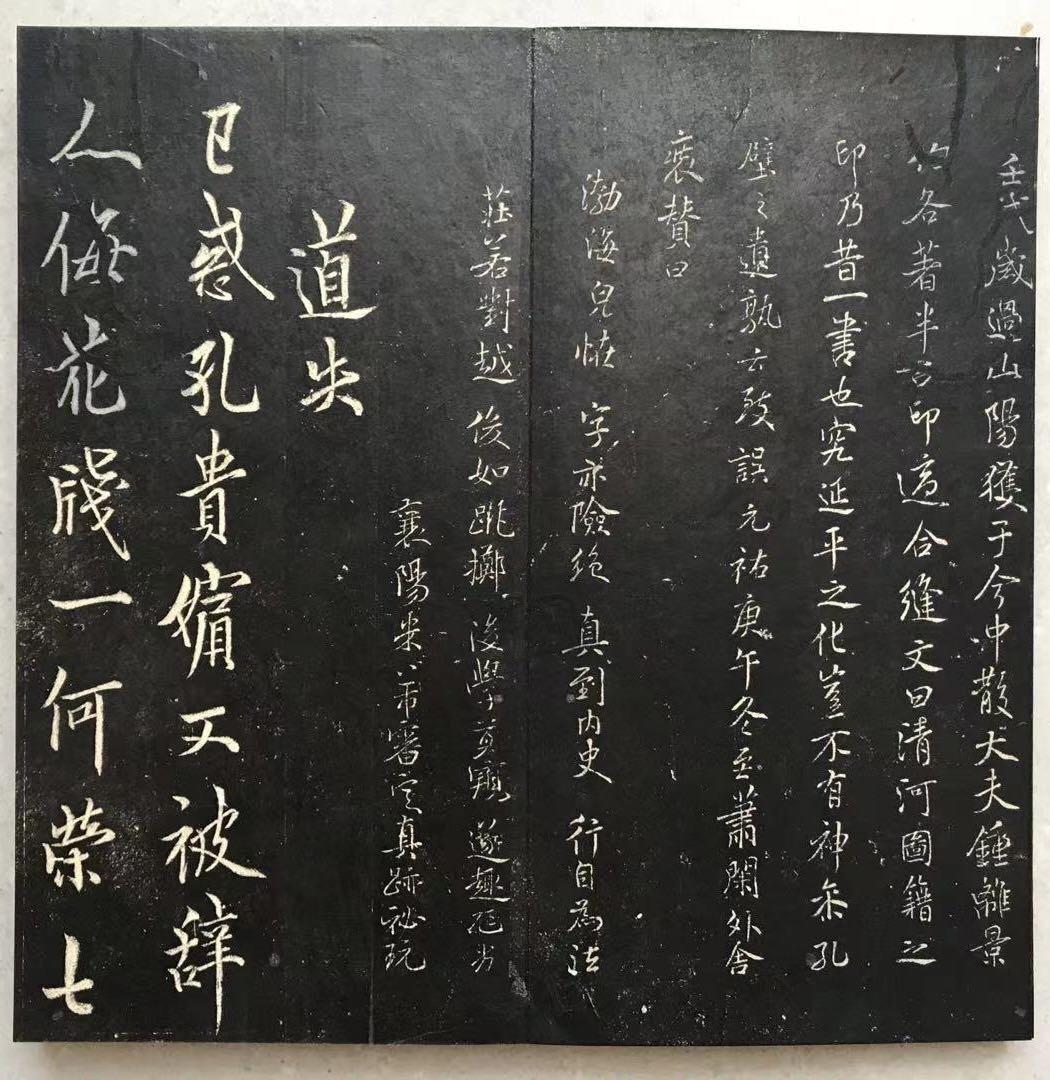 壬戌歲過山陽獲于今中散大夫鍾離景
伯各著半古印適合縫文曰清河圖籍之
印乃昔一書也究延平之化豈不有神矣孔
壁之遺孰云致誤元祐庚午冬至蕭閑外舍
裝贊曰
渤海皃恠 字亦險絕 真到內史 行自為法
莊若對越 俊如跳擲 後學莫窺 遂趣尪劣
襄陽米芾審定真跡祕玩
道失
已惑孔貴嬪又被辭
人侮花牋一何榮七